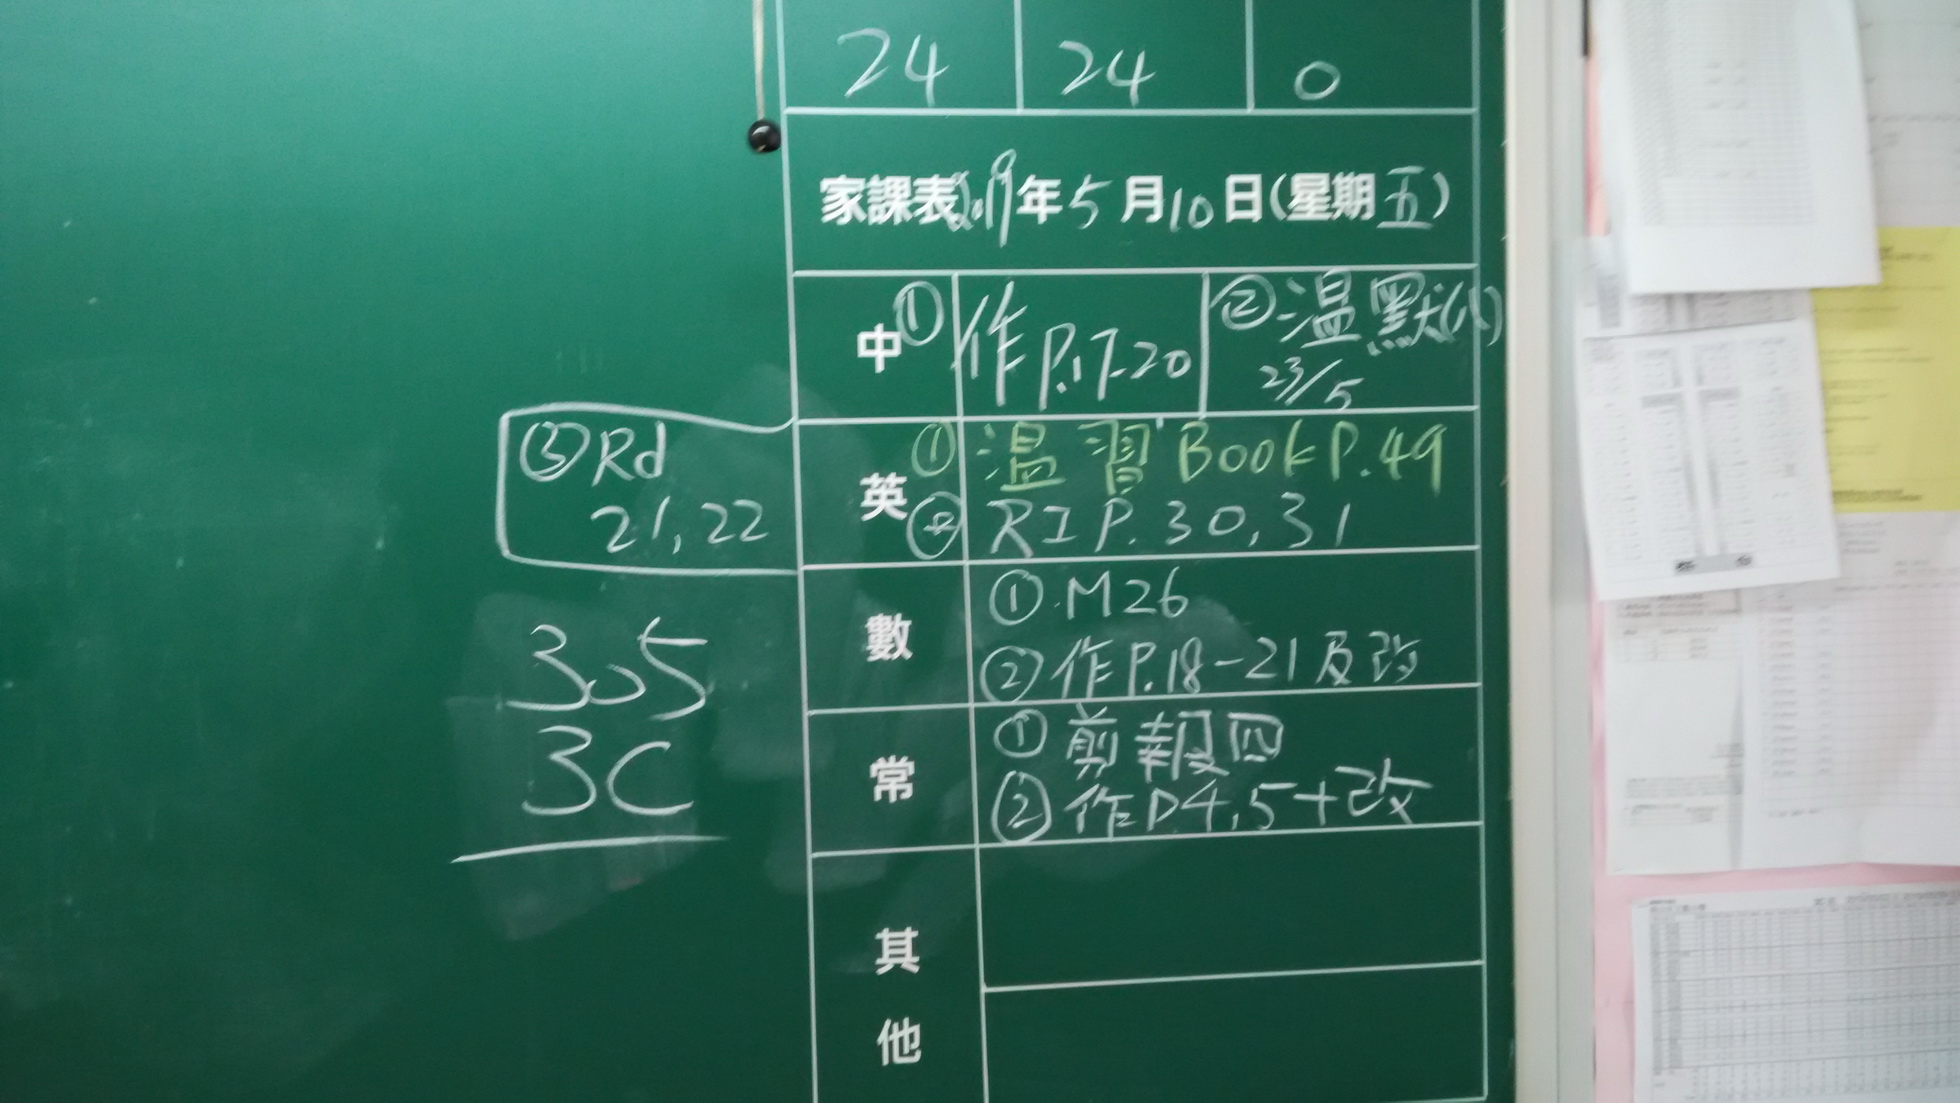 24 24 0
家課表2019年5月10日(星期五)
中 ① 作P.17-20 ②温默(八)
23/5
英 ① 温習BookP.49
RI P.30,31
③Rd
21,22
數 ①M26
②作P.18-21及改
常 ①剪報四
②作P4,5+改
305
3C
其他